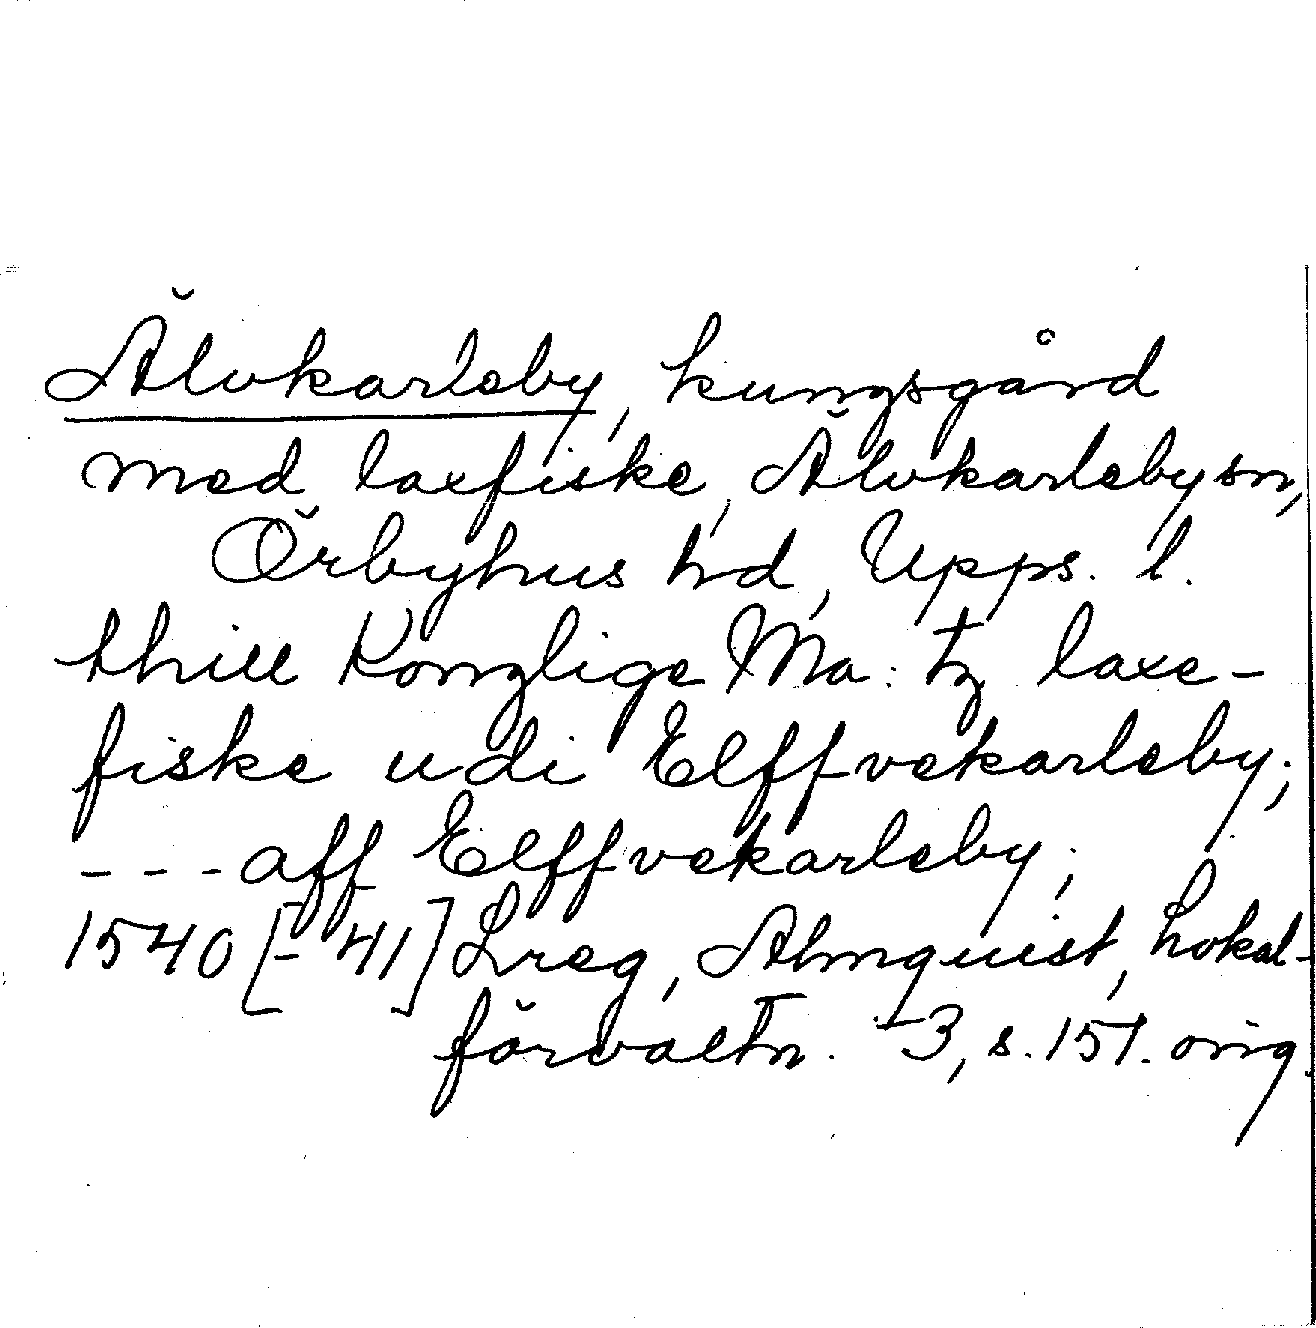 Älvkarleby, kungsgård
med laxfiske, Älvkarleby sn,
Örbyhus hd, Upps. l.
thill Konglige Ma: tz laxe-
fiske udi Elffvekarleby;
---aff Elffvekarleby;
1540 [-41] Lreg, Almquist, Lokal-
förvaltn. 3, s. 151. orig.